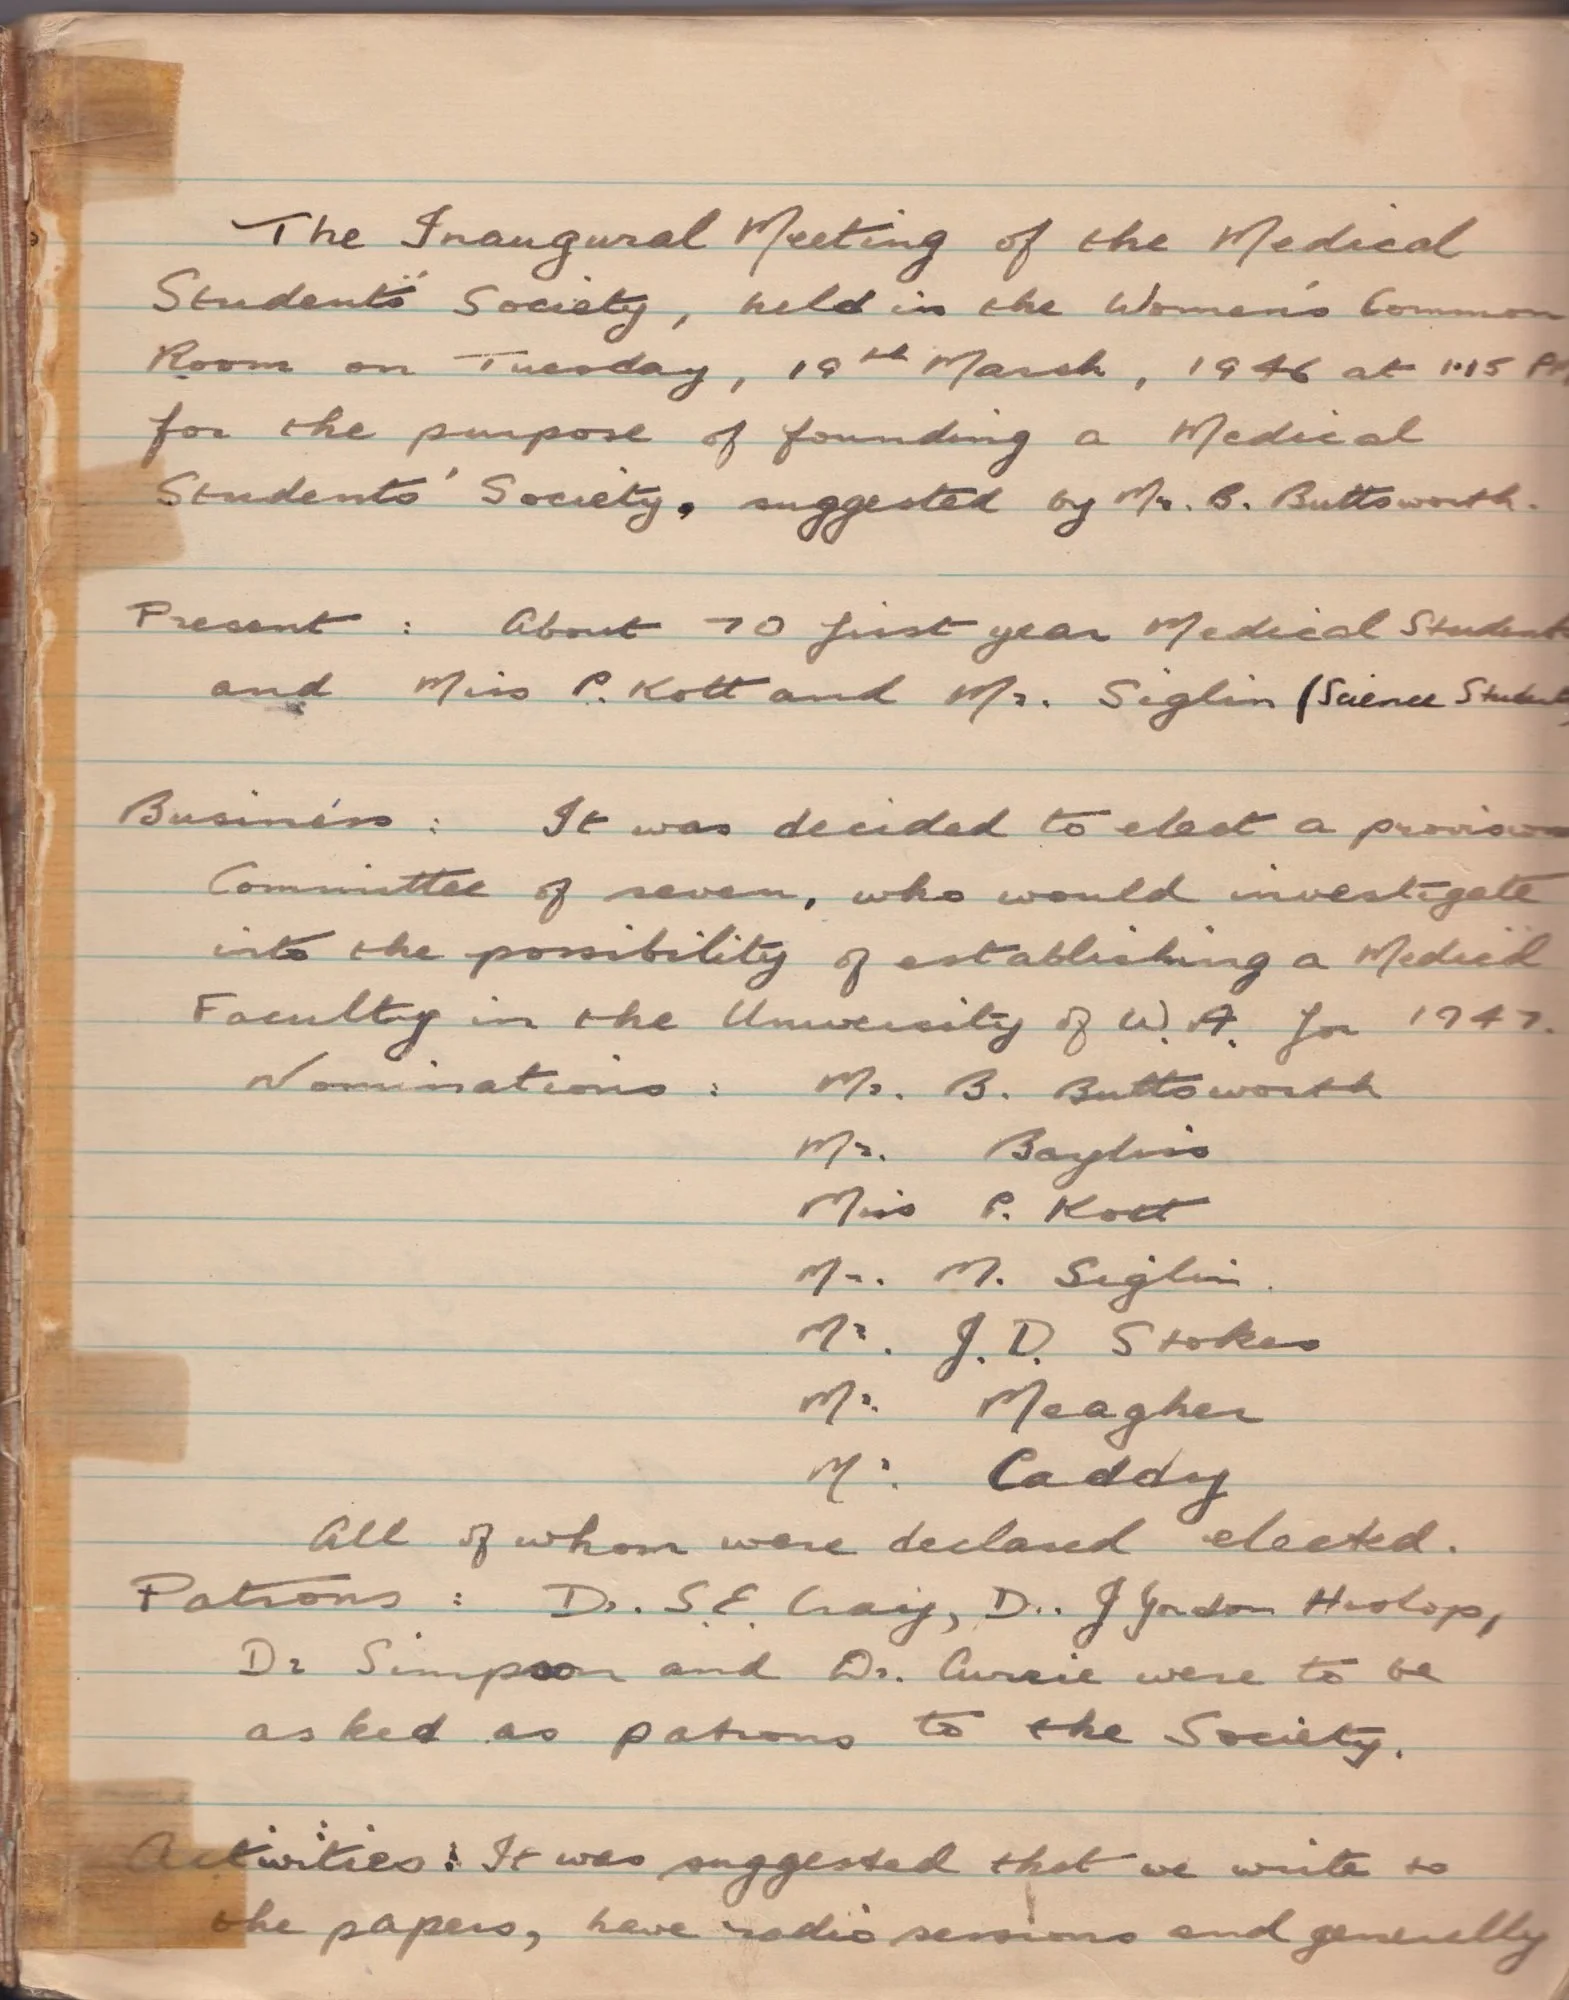 The Inaugural Meeting of the Medical
Students' Society, held in the Women's Common
Room on Tuesday, 19th March, 1946 at 1.15 PM
for the purpose of founding a Medical
Students' Society, suggested by Mr. B. Buttsworth.
Present : About 70 first year Medical Students
and Miss P. Kott and Mr. Siglin (Science Students)
Business : It was decided to elect a provision
Committee of seven, who would investigate
into the possibility of establishing a Medical
Faculty in the University of W.A. for 1947.
Nominations : Mr. B. Buttsworth
Mr. Bayliss
Miss P. Kott
Mr. M. Siglin.
Mr. J. D. Stokes
Mr. Meagher
Mr. Caddy
All of whom were declared elected.
Patrons : Dr. S.E. Craig, Dr. J Gordon Hislop,
Dr Simpson and Dr. Currie were to be
asked as patrons to the Society.
Activities : It was suggested that we write to
the papers, have radio sessions and generally